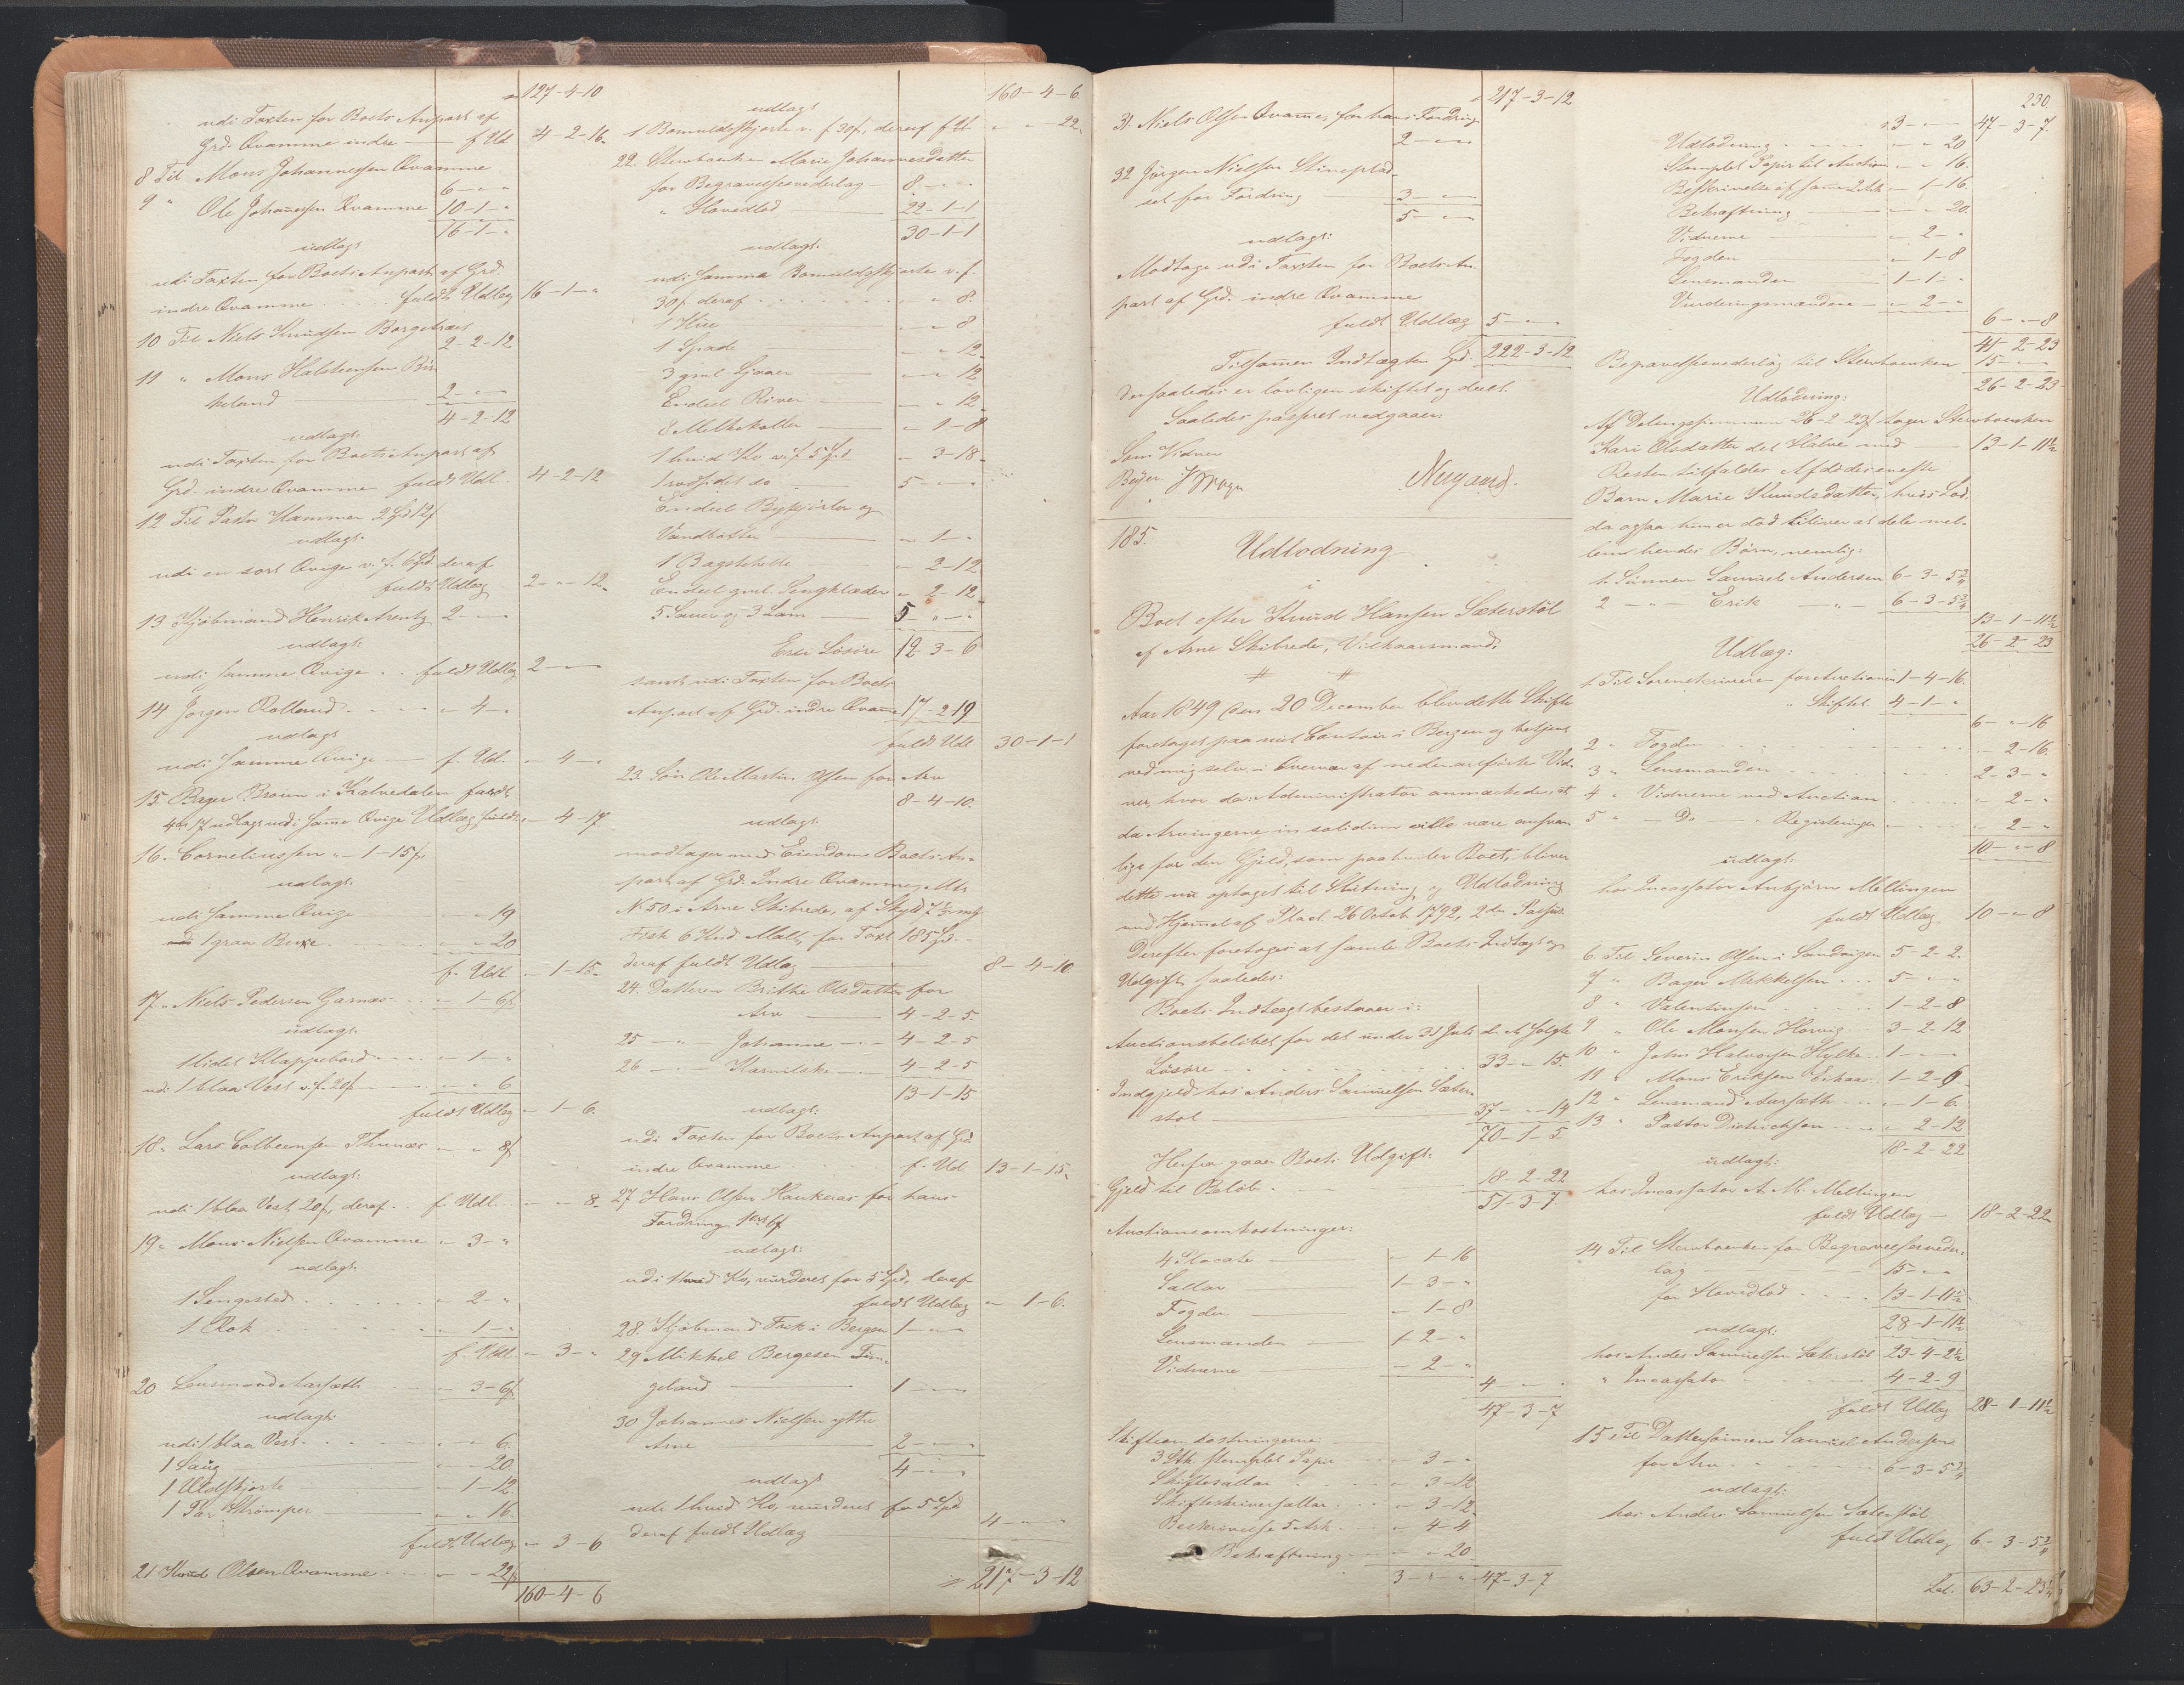 127-4-10
udi Taxten for Boets Anpart af
Grd. Qvamme indre — f Udl 4-2-16.
8 Til Mons Johannessen Qvamme
6-"-"
9 " Ole Johannessen Qvamme 10-1-"
16-1-"
udlagt
udi Taxten for Boets Anpart af Grd.
indre Qvamme . . . fuldt Udlæg 16-1-"
10 Til Niels Knudsen Borgetræet
2-2-12
11 " Mons Halsteensen Bir
keland — 2-"-"
4-2-12
udlagt
udi Taxten for Boets Anpart af
Grd. indre Qvamme fuldt Udl. 4-2-12
12 Til Pastor Hammer 2 Spd 12 s
udlagt:
udi en sort Qvige v. f. 6 Spd. deraf
fuldt Udlæg 2-"-12.
13 Kjøbmand Henrik Arentz 2-"-"
udlagt:
udi samme Qvige . . fuldt Udlæg 2-"-"
14 Jørgen Rolland . . . "-4-"
udlagt
udi samme Qvige — f. Udl. "-4-"
15 Bager Bruun i Kalvedalen
4 ort 17 udlagt udi samme Qvige Udlæg fuldt "-4-17
16. Corneliussen "-1-15 s
udlagt:
udi samme Qvige "-"-19
1 graa Buxe . . "-"-20
f. Udl "-1-15.
17 " Niels Pedersen Garnæs . . "-1-6 s
udlagt:
1 lidet Klappebord . . . "-1-"
udi 1 blaa Vest v. f. 20 s — "-"-6
fuldt Udlæg "-1-6.
18 " Lars Colbeensen Thunæs "-"-8 s
udlagt:
udi 1 blaa Vest 20 s, deraf . . f. Udl. . "-"-8.
19 " Mons Nielsen Qvamme "-3-"
udlagt:
1 Sengested . . . . . "-2-"
1 Rok . . . . "-1-"
f. Udl. "-3-"
20 Lensmand Aarsæth "-3-6 s
udlagt:
udi 1 blaa Vest . . . "-"-6.
1 Saug "-"-20
1 Uldskjorte "-1-12
1 Par Strømper — "-"-16.
fuldt Udlæg "-3-6
21 Knud Olsen Qvamme . . "-"-22 s
160-4-6
160-4-6.
udlagt
1 Bomuldsskjorte v. f. 30 s, deraf f Udl "-"-22.
22. Sterboenke Marie Johannesdatter
for Begravelsesvederlag — 8-"-"
" Hovedlod — 22-1-1
30-1-1
udlagt.
udi samme Bomuldsskjorte v. f.
30 s. deraf . . . . "-"-8.
1 Hue "-"-8
1 Spade "-"-12.
3 gml Ljaaer — "-"-12
Endeel River — "-"-12
8 Melkekoller — "-1-8
1 hvid Ko v. f. 5 Spd "-3-18.
1 rødsidet do — 5-"-"
Endeel Bygkister og
Vandbøtte — "-1-"
1 Bagstehelle "-2-12
Endeel gml. Sengklæder "-2-12
5 Sauer og 3 Lam — 5-"-"
 Erti Løsøre 12-3-6
samt udi Taxten for Boets
Anpart af Grd. indre Qvamme 17-2-19
fuldt Udl 30-1-1
23. Søn Ole Martin Olsen for Arv
8-4-10.
udlagt
modtager med Eiendom Boets An-
part af Grd. Indre Qvamme, Mtr
No 50 i Arne Skibrede, af Skyld 7 1/2 mk
Fisk 6 Knd Malt, for Taxt 185 Spd —
deraf fuldt Udlæg — 8-4-10
24. Datteren Brithe Olsdatter for
Arv — 4-2-5.
25 — " Johanne — 4-2-5
26 — " — 4-2-5
13-1-15
udlagt:
udi Taxten for Boets Anpart af Grd
indre Qvamme . . . f. Udl. 13-1-15.
27 Hans Olsen Haukeraas for hans
Fordring 1 ort 6 s
udlagt:
udi 1 hvid Ko, vurderet for 5 Spd, deraf
fuldt Udlæg "-1-6.
28. Kjøbmand Fick i Bergen 1-"-"
29 Mikkel Bergesen Tun-
geland — 1-"-"
30 Johannes Nielsen yttre
Arne — 2-"-"
4-"-"
udlagt
udi 1 hvid Ko, vurderet for 5 Spd
deraf fuldt Udlæg 4-"-"
217-3-12
217-3-12
31. Niels Olsen Qvamme, for hans Fordring
2-"-"
32 Jørgen Nielsen Steenplad-
set for Fordring 3-"-"
5-"-"
udlagt:
Modtage udi Taxten for Boets An-
part af Grd. indre Qvamme
fuldt Udlæg 5-"-"
Tilsammen Indtægten Spd. 222-3-12
Dersaaledes er lovligen skiftet og deelt.
Saaledes passeret vedgaaer:
Som Vidner
Beyer
Nygaard.
185.
Udlodning
i
Boet efter Knud Hansen Sæterstøl
af Arne Skibrede, Vilkaarsmand.
Aar 1849 den 20 December blev dette Skifte
foretaget paa mit Contoir i Bergen og betjent
ved mig selv i Overvær af nedenanførte Vid-
ner, hvor da Administrator anmærkede, at
da Arvingerne in solidum ville være ansvar-
lige for den Gjeld, som paahviler Boet, bliver
dette nu optaget til Slutning og Udlodning
med Hjemmel af Placat 26 Octob 1792, 2den Passus.
Derefter foretoges at samle Boets Indtægt og
Udgift saaledes:
Boets Indtægt bestaaer i:
Auctionsbeløbet for det under 31 Juli d. A. solgte
Løsøre . . . . . 33-"-15.
Indgjeld hos Anders Samuelsen Sæter-
støl 37-"-14
70-1-5.
Herfra gaaer Boets Udgift:
Gjeld til Beløb . 18-2-22
51-3-7.
Auctionsomkostninger:
4 Placater — "-1-16
Sallar — 1-3-"
Fogden — "-1-8
Lensmanden — 1-2-"
Vidnerne — "-2-"
4-"-"
47-3-7
Skifteomkostningerne
3 Ark stemplet Papir "-3-"
Skiftesallar "-3-12
Skifteskriversallar . . "-3-12
Beskrivelse 5 Ark . . "-4-4
Bekræftning . . "-"-20
3-"-" 47-3-7
230.
3-"-" 47-3-7.
Udlodning . . . "-"-20
Stemplet Papir til Auction "-"-16.
Beskrivelse af samme 2 Ark "-1-16.
Bekræftning "-"-20.
Vidnerne "-2-"
Fogden "-1-8
Lensmanden 1-1-"
Vurderingsmændene "-2-"
6-"-8
41-2-23
Begravelsesvederlag til Sterboenken 15-"-"
26-2-23
Udlodning:
Af Delingssummen 26-2-23 s tager Sterboenken
Kari Olsdatter det Halve med — 13-1-11 1/2
Resten tilfalder Afdødes eneste
Barn Marie Knudsdatter, hvis Lod
da ogsaa hun er død bliver at dele mel-
lem hendes Børn, nemlig:
1. Sønnen Samuel Andersen 6-3-5 3/4
2 — " — Erik — " — 6-3-5 3/4
13-1-11 1/2
26-2-23
Udlæg:
1. Til Sorenskriveren for Auctionen 1-4-16.
" Skiftet 4-1-"
6-"-16
2 " Fogden . . . "-2-16.
3 " Lensmanden . . . 2-3-"
4 " Vidnerne ved Auction . . . "-2-"
5 " — Do — " Registeringen . . "-2-"
10-"-8
udlagt:
hos Incassator Anbjørn Mellingen
fuldt Udlæg 10-"-8
6. Til Severin Olsen i Sandvigen 5-2-2.
7 " Bager Mekkelsen . . . 5-"-"
8 " Valentinsen . . . 1-2-8
9 " Ole Monsen Horvig 3-2-12
10 " John Halvorsen Hylke . . 1-"-"
11 " Mons Eriksen Eikaas . 1-2-6
12 " Lensmand Aarsæth . . "-1-6.
13 " Pastor Didrichsen . . "-2-12
18-2-22
udlagt:
hos Incassator A. M. Mellingen
fuldt Udlæg — 18-2-22
14 Til Sterboenken for Begravelsesveder-
lag — 15-"-"
for Hovedlod . . . 13-1-11 1/2
28-1-11 1/2
udlagt:
hos Anders Samuelsen Sæterstøl 23-4-2 1/2
" Incassator . . . 4-2-9
fuldt Udlæg 28-1-11 1/2
15 Til Dattersønnen Samuel Andersen
for Arv . . . 6-3-5 3/4
udlagt:
hos Anders Samuelsen Sæterstøl
fuld Udlæg 6-3-5 3/4
Lat. 63-2-23 1/4